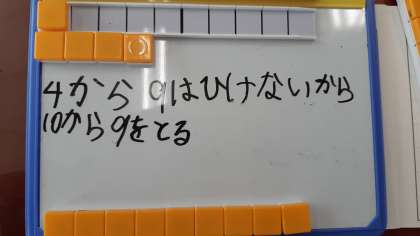 4から9はひけないから
10から9をとる